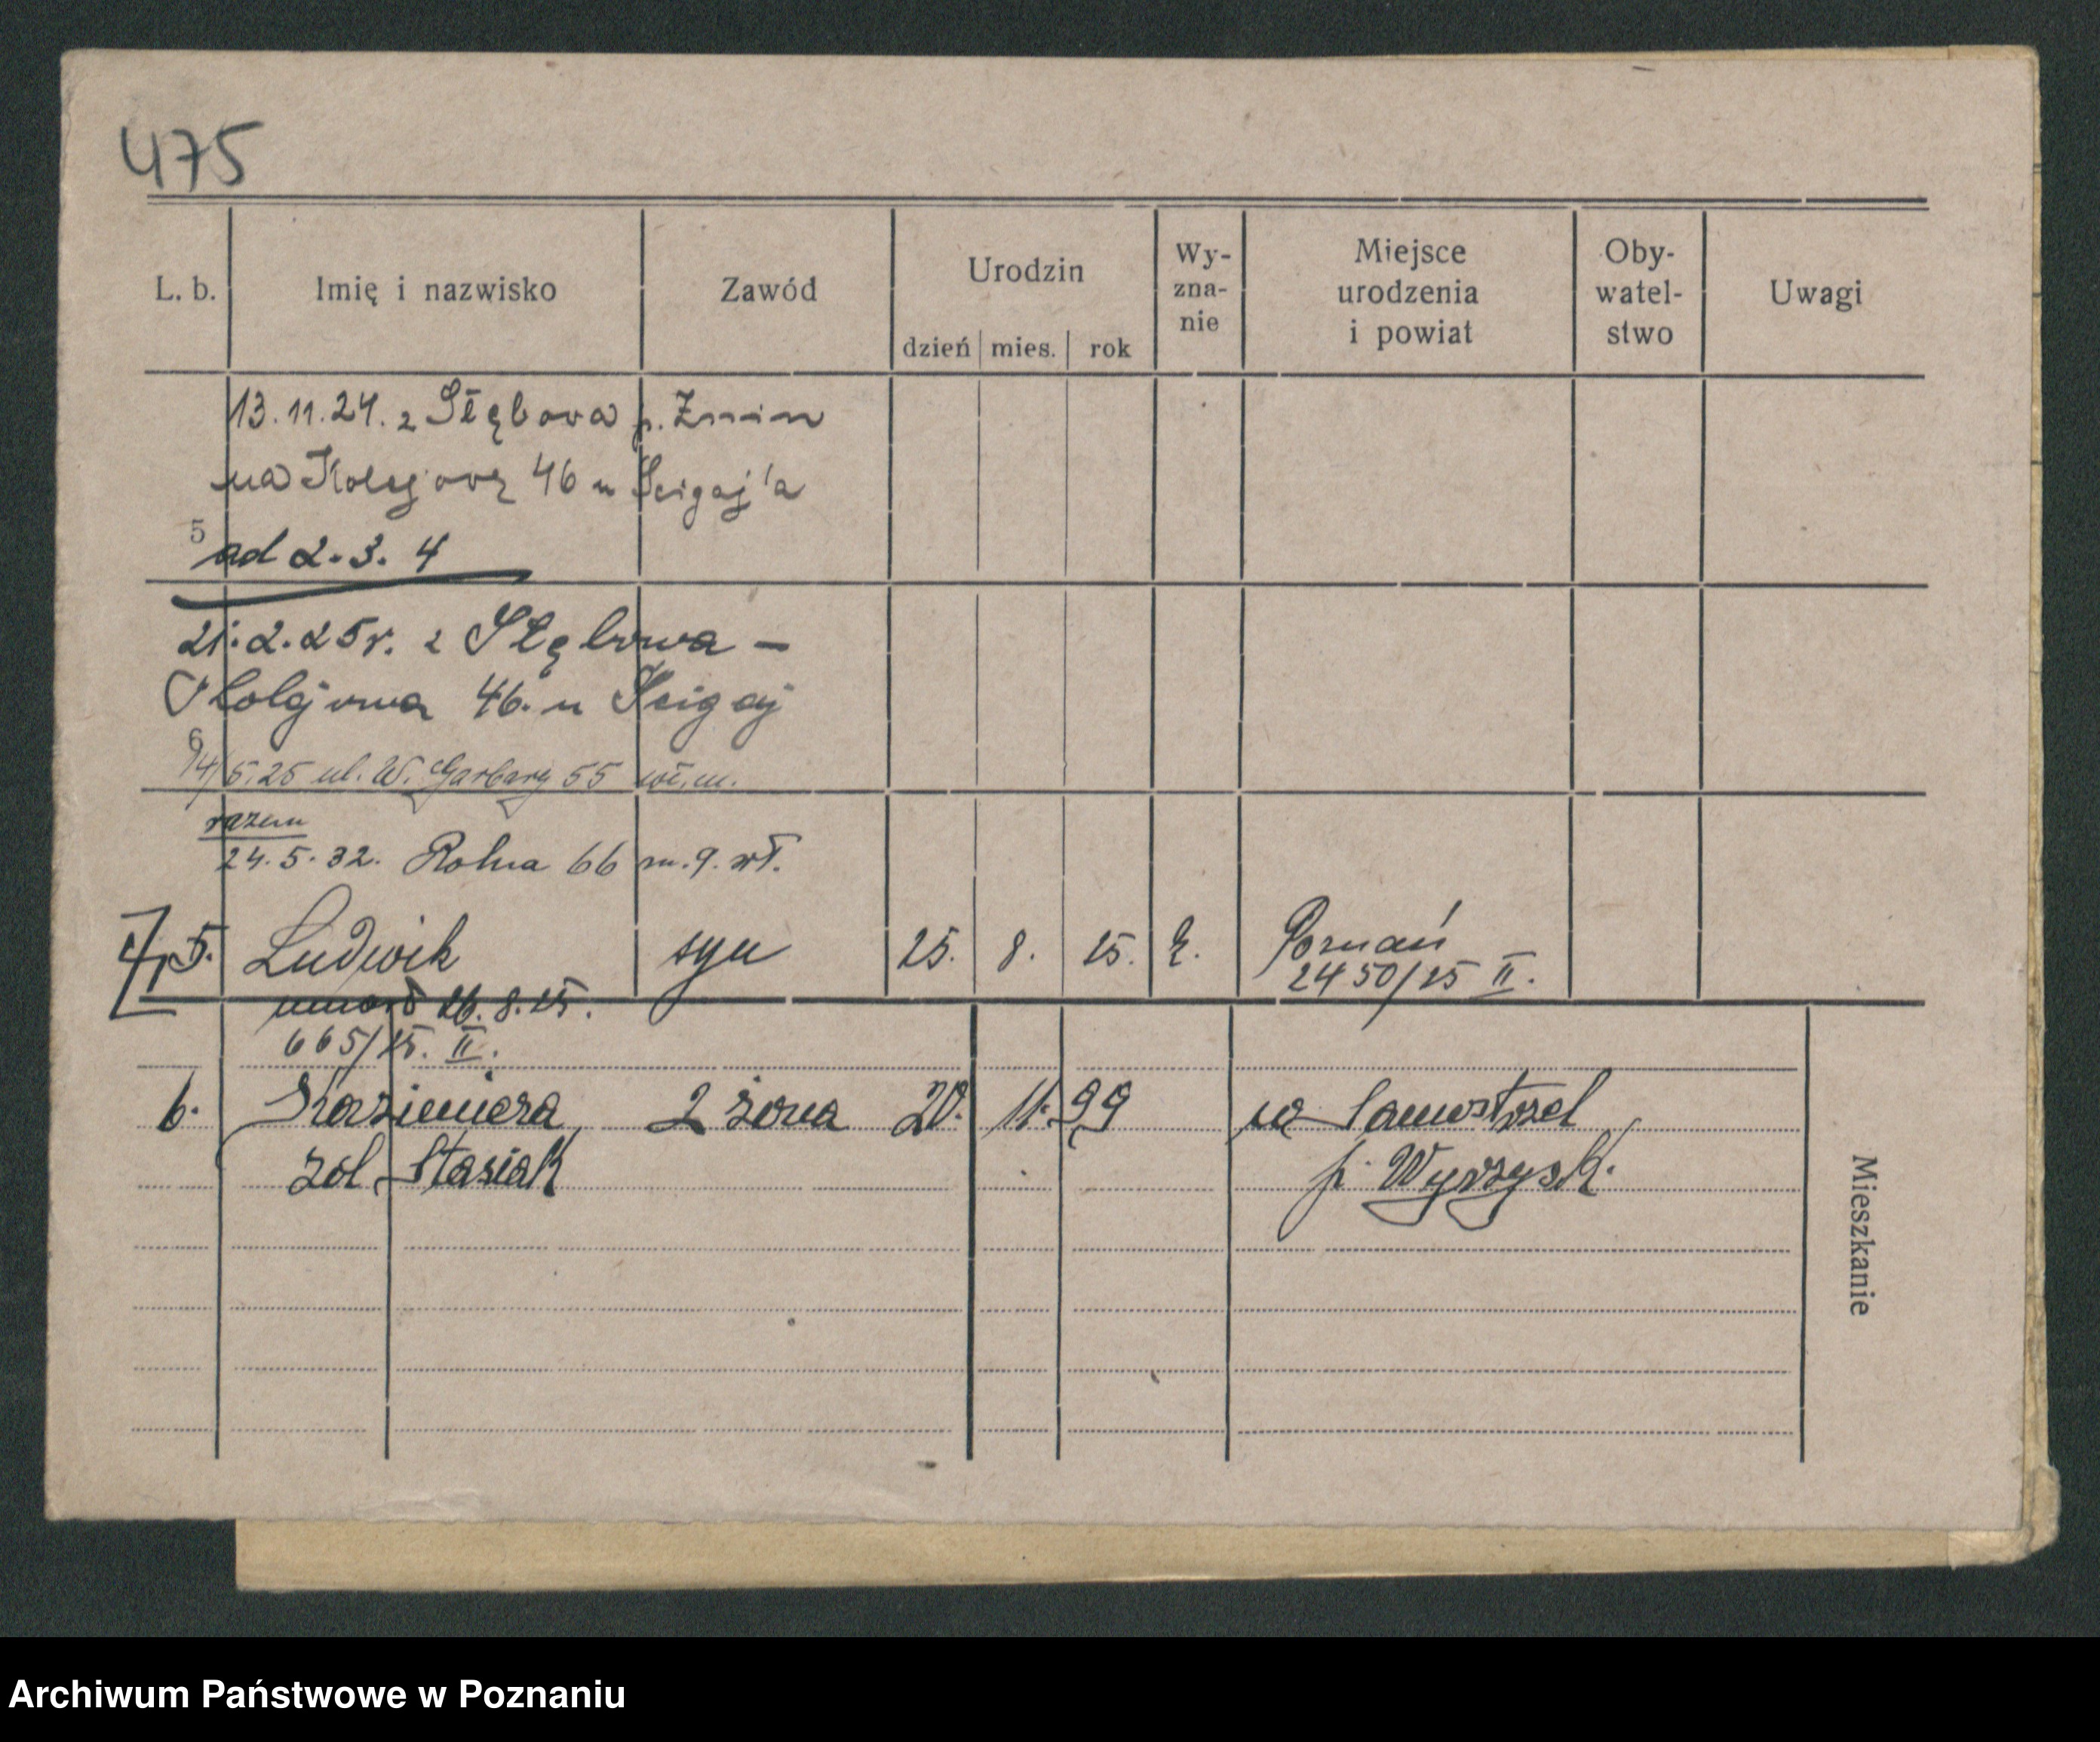 475
L. b. Imię i nazwisko Zawód Urodzin dzień mies. rok Wy-zna-nie Miejsce urodzenia i powiat Oby-watel-stwo Uwagi
13.11.24. z Słębowa p. Żnin
na Kolejową 46 u Ścigaj'a
5
ad 2. 3. 4
21. 2. 25 r. z Słębowa –
Kolejowa 46. u Ścigaj
6
4/5.25 ul. W. Garbary 55 wł. m.
razem
24. 5. 32. Rolna 66 m. 9. wł.
5. Ludwik syn 25. 8. 25. Poznań
2450/25 II.
umarł 26. 8. 25.
665/25. II.
6. Kazimiera 2 żona 20. 11. 99 w Samostrzel
zd. Stasiak p. Wyrzysk.
Mieszkanie
Archiwum Państwowe w Poznaniu